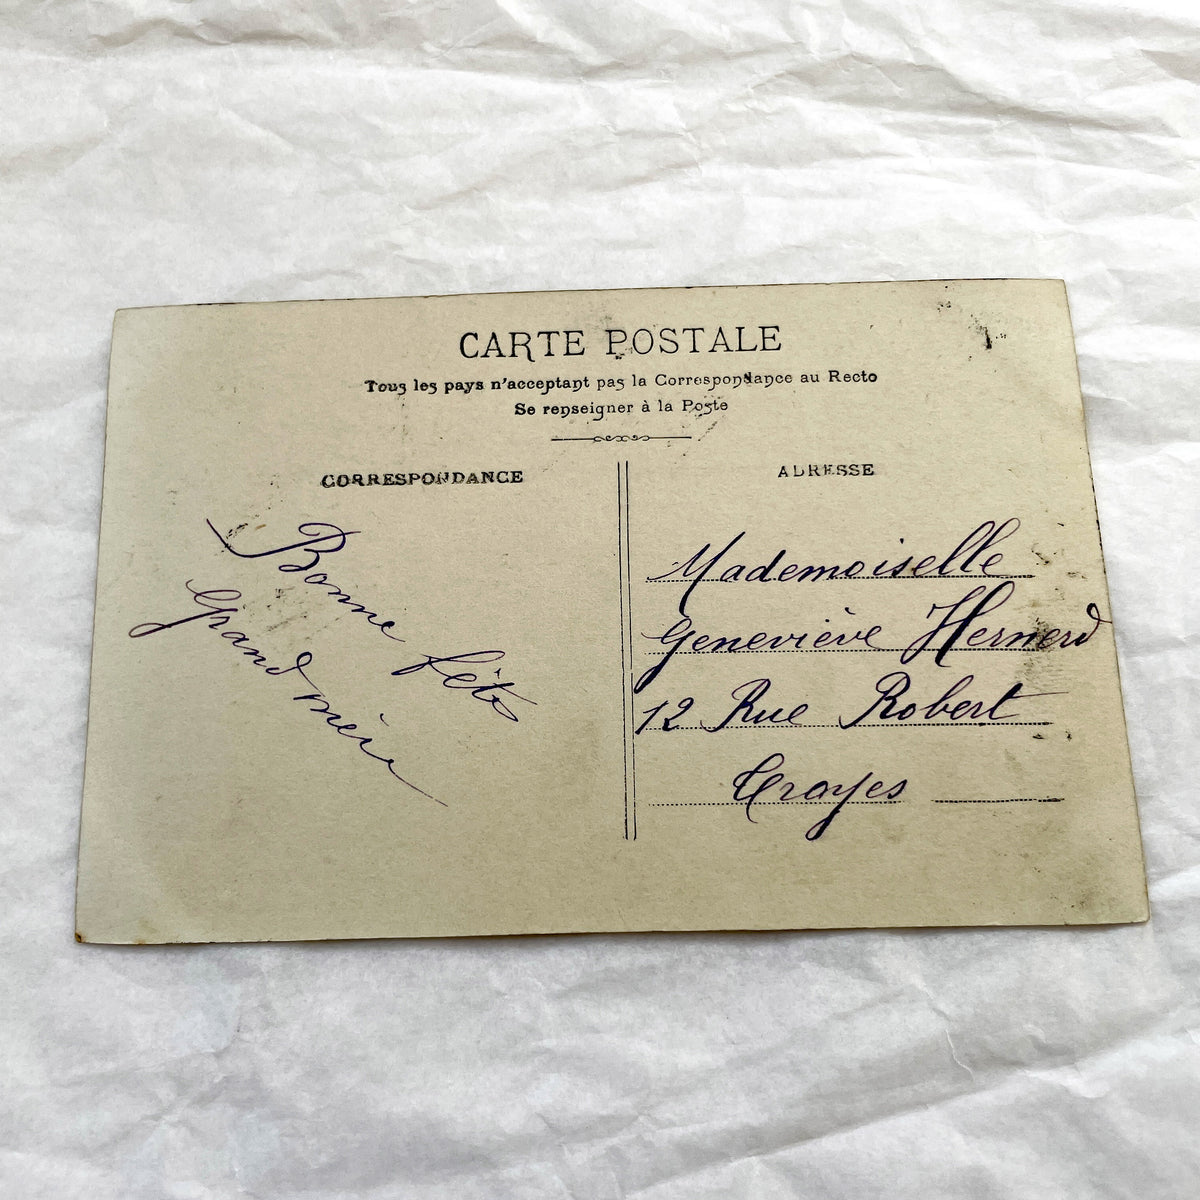 CARTE POSTALE
Tous les pays n'acceptant pas la Correspondance au Recto
Se renseigner à la Poste
CORRESPONDANCE
Bonne fête
Grand mère
ADRESSE
Mademoiselle
Geneviève Hernerd
12 Rue Robert
Troyes